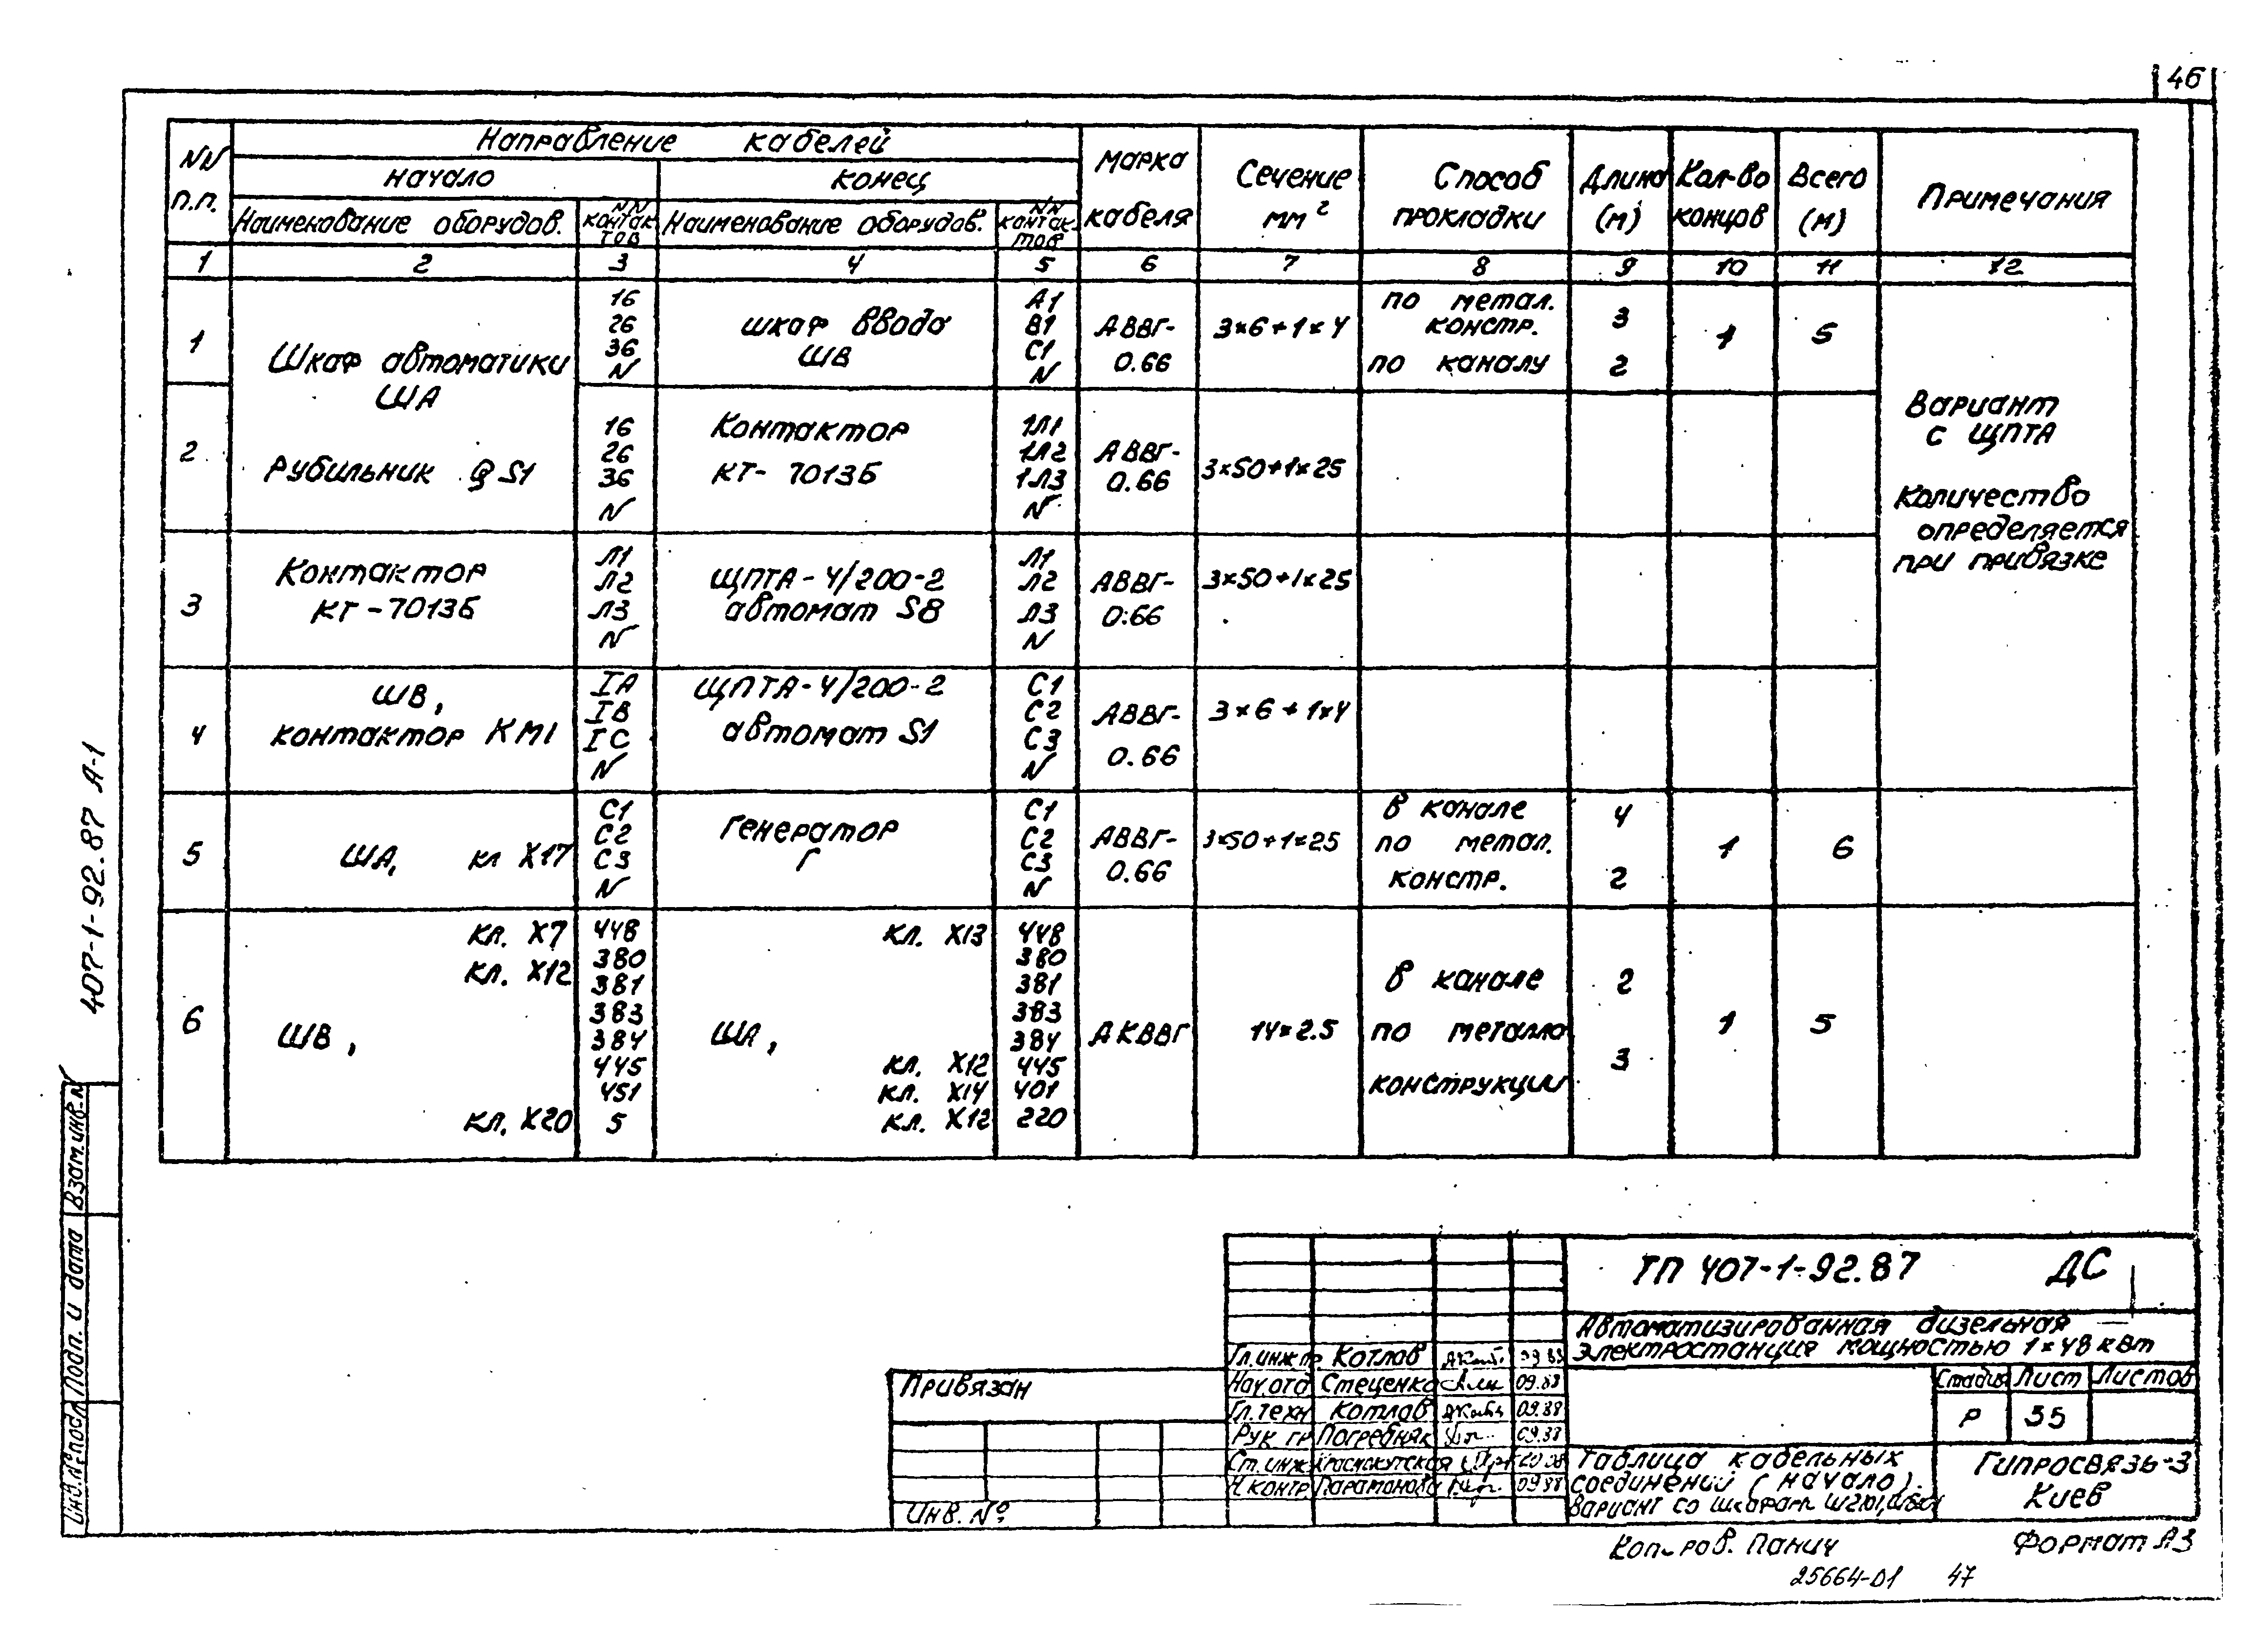 46
NN п.п.
Направление кабелей
начало
конец
Наименование оборудов.
NN контак тов
Наименование оборудов.
NN контак- тов
марка кабеля
Сечение мм²
Способ прокладки
Длина (м)
Кол-во концов
Всего (м)
Примечания
1 2 3 4 5 6 7 8 9 10 11 12
1
Шкаф автоматики
ША
16
26
36
N
шкаф ввода
ШВ
А1
В1
С1
N
АВВГ-
0.66
3×6+1×4
по метал.
констр.
по каналу
3
2
1
5
2
Рубильник QS1
16
26
36
N
Контактор
КТ-7013Б
1Л1
1Л2
1Л3
N
АВВГ-
0.66
3×50+1×25
Вариант
с ЩПТА
Количество
определяется
при привязке
3
Контактор
КТ-7013Б
Л1
Л2
Л3
N
ЩПТА-4/200-2
автомат S8
Л1
Л2
Л3
N
АВВГ-
0.66
3×50+1×25
4
ШВ,
контактор КМ1
IA
IB
IC
N
ЩПТА-4/200-2
автомат S1
С1
С2
С3
N
АВВГ-
0.66
3×6+1×4
5
ША, кл Х17
С1
С2
С3
N
Генератор
Г
С1
С2
С3
N
АВВГ-
0.66
3×50+1×25
в канале
по метал.
констр.
4
2
1
6
6
ШВ,
кл. Х7
кл. Х12
кл. Х20
448
380
381
383
384
445
451
5
ША,
кл. Х13
кл. Х12
кл. Х14
кл. Х12
448
380
381
383
384
445
401
220
АКВВГ
14×2.5
в канале
по металло
конструкции
2
3
1
5
407-1-92.87 А-1
Взам.инв.N
Подп. и дата
Инв.N°подл
Привязан
Инв. N°
ТП 407-1-92.87 ДС
Автоматизированная дизельная
электростанция мощностью 1×48 квт
Гл.инж.пр. Котлов 09.88
Нач.отд Стеценко 09.88
Гл.техн Котлов 09.88
Рук гр Погребняк 09.88
Ст.инж Краснокутская
Н.контр Парамонова 09.88
Стадия Лист Листов
Р 35
Таблица кабельных
соединений (начало).
Вариант со шкафам
Гипросвязь-3
Киев
Копиров. Панич
Формат А3
25664-01 47